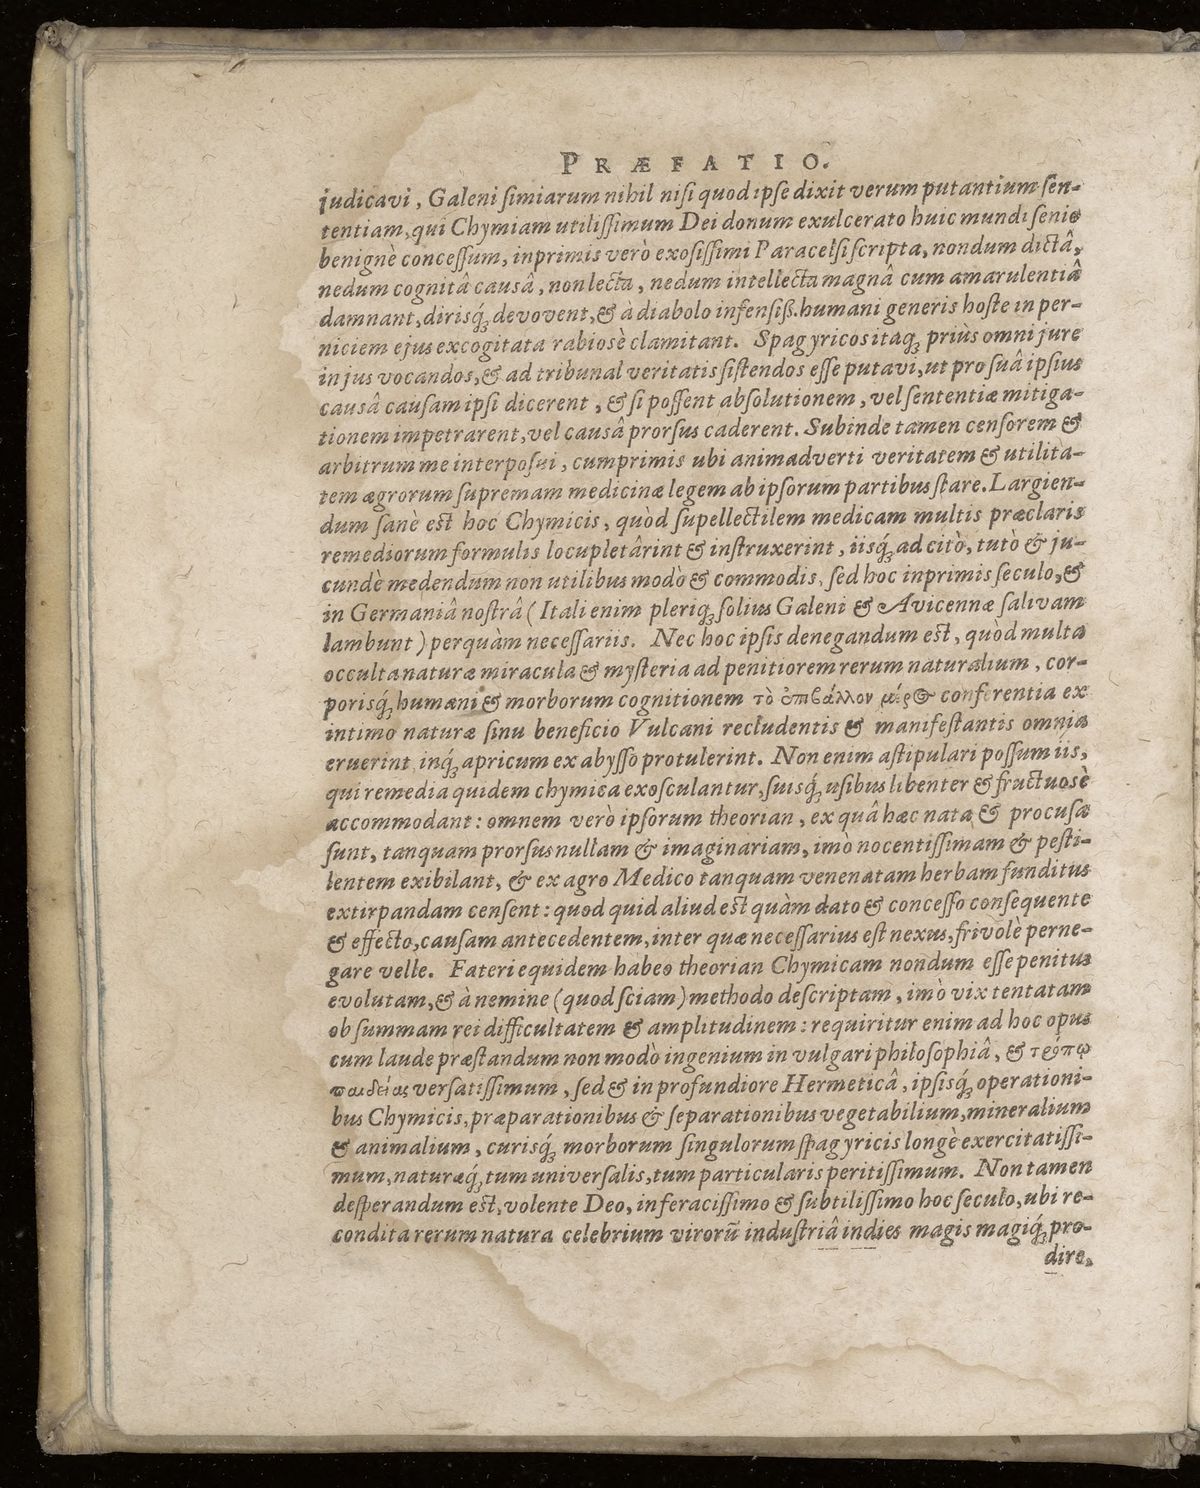 PRÆFATIO.
judicavi, Galeni ſimiarum nihil niſi quod ipſe dixit verum putantium ſen-
tentiam, qui Chymiam utiliſſimum Dei donum exulcerato huic mundi ſenio
benignè conceſſum, inprimis verò exoſiſſimi Paracelſi ſcripta, nondum dictâ,
nedum cognitâ causâ, non lecta, nedum intellecta magnâ cum amarulentiâ
damnant, dirisq́ꝫ devovent, & à diabolo infenſiß. humani generis hoſte in per-
niciem ejus excogitata rabiosè clamitant. Spagyricos itaqꝫ priùs omni jure
in jus vocandos, & ad tribunal veritatis ſiſtendos eſſe putavi, ut pro ſuâ ipſius
causâ cauſam ipſi dicerent, & ſi poſſent abſolutionem, vel ſententiæ mitiga-
tionem impetrarent, vel causâ prorſus caderent. Subinde tamen cenſorem &
arbitrum me interpoſui, cumprimis ubi animadverti veritatem & utilita-
tem ægrorum ſupremam medicinæ legem ab ipſorum partibus ſtare. Largien-
dum ſanè est hoc Chymicis, quòd ſupellectilem medicam multis præclaris
remediorum formulis locupletârint & inſtruxerint, iisq́ꝫ ad citò, tutò & ju-
cundè medendum non utilibus modò & commodis, ſed hoc inprimis ſeculo, &
in Germaniâ noſtrâ (Itali enim pleriqꝫ ſolius Galeni & Avicennæ ſalivam
lambunt) perquàm neceſſariis. Nec hoc ipſis denegandum est, quòd multa
occulta naturæ miracula & myſteria ad penitiorem rerum naturalium, cor-
porisq́ꝫ humani & morborum cognitionem τὸ ἐπιβάλλον μέρος conferentia ex
intimo naturæ ſinu beneficio Vulcani recludentis & manifeſtantis omnia
eruerint inq́ꝫ apricum ex abyſſo protulerint. Non enim aſtipulari poſſum iis,
qui remedia quidem chymica exoſculantur, ſuisq́ꝫ uſibus libenter & fructuosè
accommodant: omnem verò ipſorum theorian, ex quâ hæc nata & procuſa
ſunt, tanquam prorſus nullam & imaginariam, imò nocentiſſimam & peſti-
lentem exibilant, & ex agro Medico tanquam venenatam herbam funditus
extirpandam cenſent: quod quid aliud est quàm dato & conceſſo conſequente
& effecto, cauſam antecedentem, inter quæ neceſſarius eſt nexus, frivolè perne-
gare velle. Fateri equidem habeo theorian Chymicam nondum eſſe penitus
evolutam, & à nemine (quod ſciam) methodo deſcriptam, imò vix tentatam
ob ſummam rei difficultatem & amplitudinem: requiritur enim ad hoc opus
cum laude præſtandum non modò ingenium in vulgari philoſophiâ, & τρόπῳ
παιδείας verſatiſſimum, ſed & in profundiore Hermeticâ, ipſisq́ꝫ operationi-
bus Chymicis, præparationibus & ſeparationibus vegetabilium, mineralium
& animalium, curisq́ꝫ morborum ſingulorum ſpagyricis longè exercitatiſſi-
mum, naturæq́ꝫ, tum univerſalis, tum particularis peritiſſimum. Non tamen
deſperandum est, volente Deo, in feraciſſimo & ſubtiliſſimo hoc ſeculo, ubi re-
condita rerum natura celebrium virorũ induſtriâ indies magis magiq́ꝫ pro-
dire,